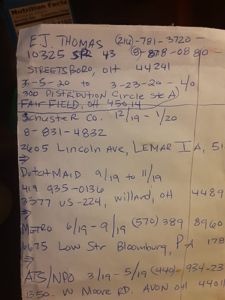 Nutrition Facts
E.J. THOMAS (216)-781-3720-
10325 SR 43 (8)-878-0890-
STREETSBORO, OH 44241
7-5-20 to 3-23-20-40
300 DISTRIBUTION Circle Ste A)
FAIRFIELD, OH 45014
SCHUSTER CO. 12/19 - 1/20
8-831-4832
2605 Lincoln Ave, LEMAR IA, 51
DutchMAID 9/19 to 11/19
419 935-0136
3377 US-224, willard, OH 4489
METRO 6/19-9/19 (570) 389 8960
6675 Low Str Bloomburg, PA 178
ATS/NPO 3/19-5/19 (440)- 934-23
1350 W. Moore RD. AVON OH 4401